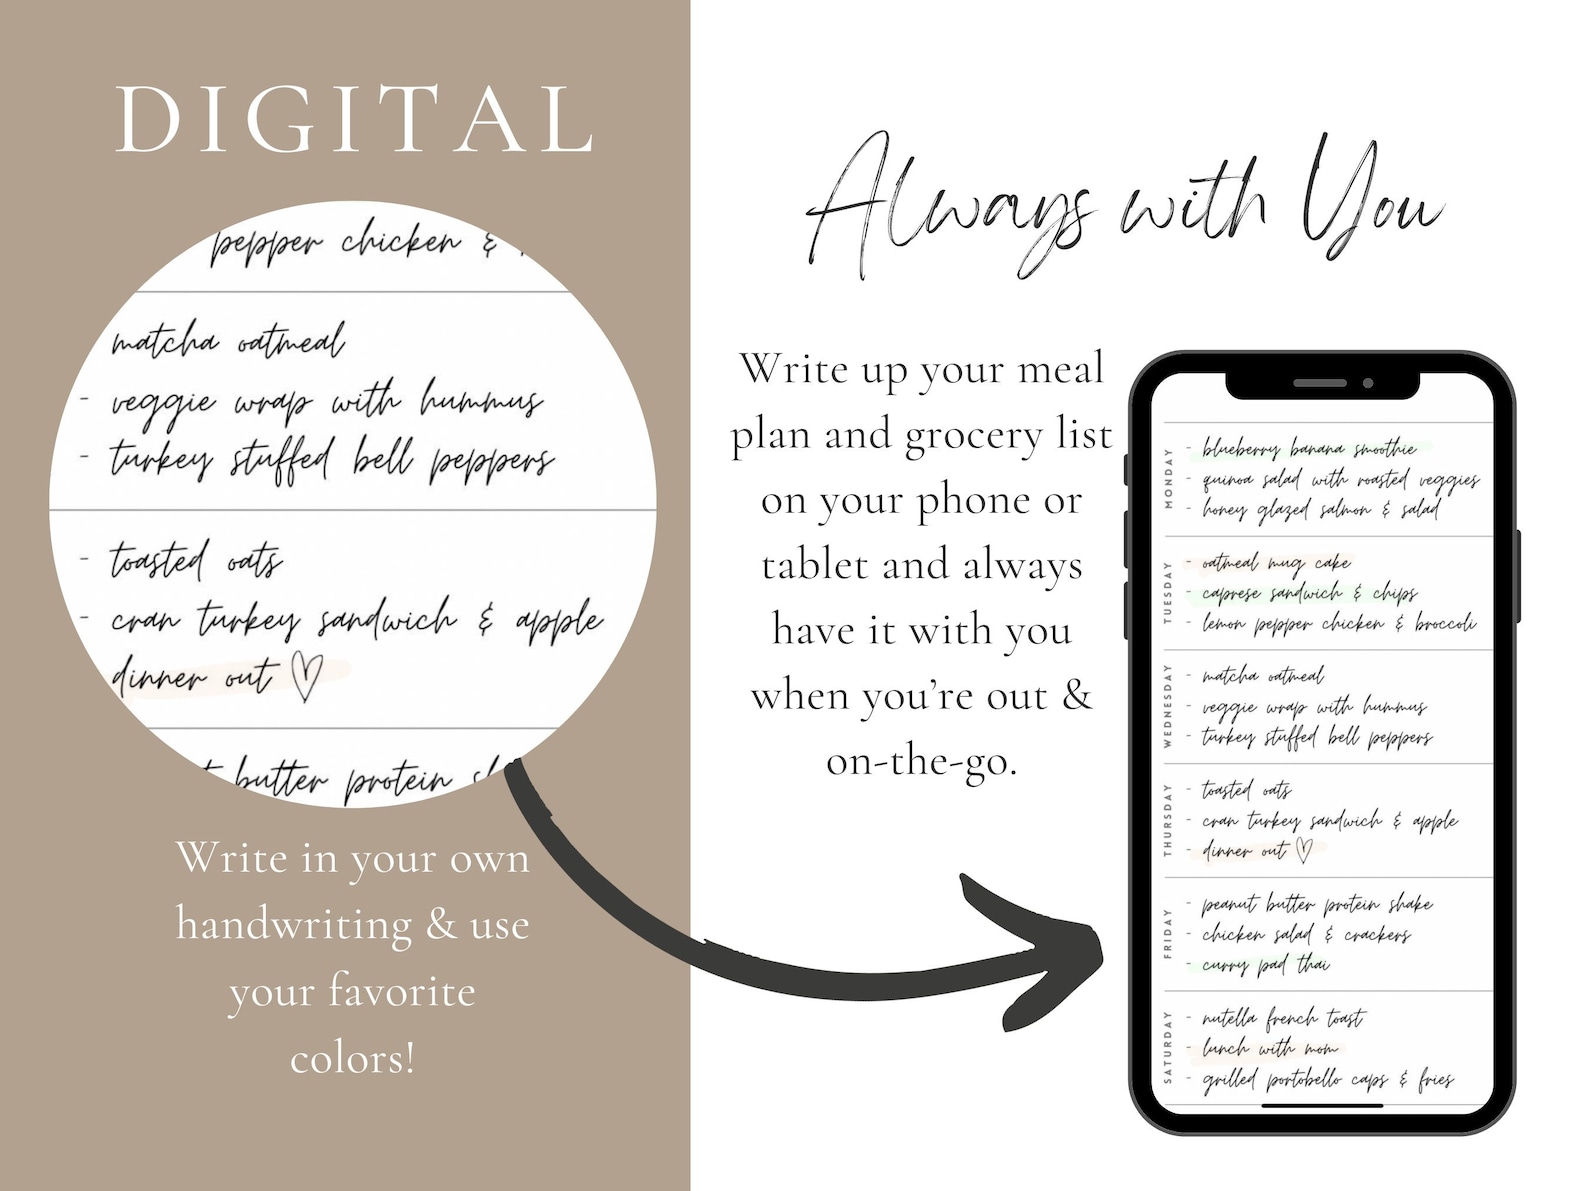 DIGITAL
pepper chicken &
matcha oatmeal
- veggie wrap with hummus
- turkey stuffed bell peppers
- toasted oats
- cran turkey sandwich & apple
dinner out ♡
butter protein
Write in your own
handwriting & use
your favorite
colors!
Always with You
Write up your meal
plan and grocery list
on your phone or
tablet and always
have it with you
when you’re out &
on-the-go.
MONDAY
- blueberry banana smoothie
- quinoa salad with roasted veggies
- honey glazed salmon & salad
TUESDAY
- oatmeal mug cake
- caprese sandwich & chips
- lemon pepper chicken & broccoli
WEDNESDAY
- matcha oatmeal
- veggie wrap with hummus
- turkey stuffed bell peppers
THURSDAY
- toasted oats
- cran turkey sandwich & apple
- dinner out ♡
FRIDAY
- peanut butter protein shake
- chicken salad & crackers
- curry pad thai
SATURDAY
- nutella french toast
- lunch with mom
- grilled portobello caps & fries